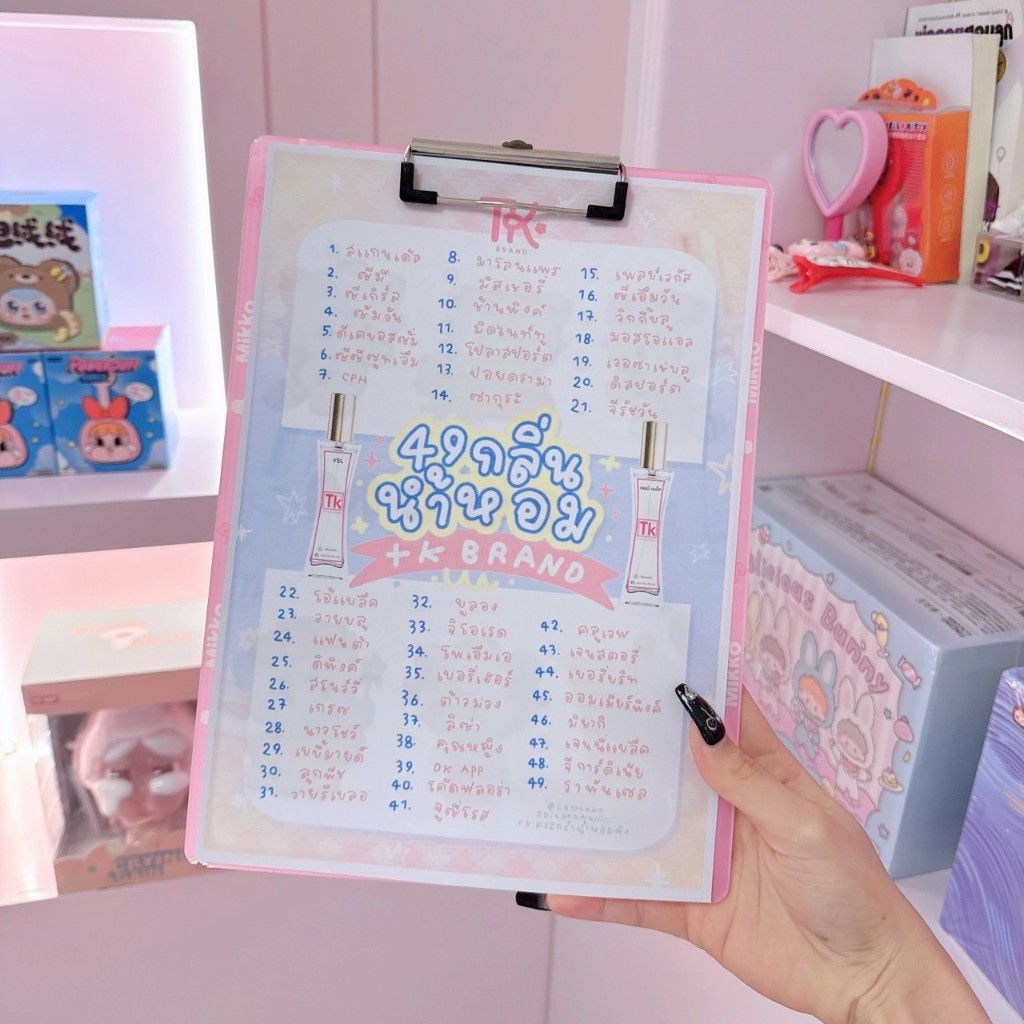 TK
BRAND
1. สแกนเดิล
2. ซีมี
3. ซีเกิร์ล
4. ซัมวัน
5. ดีเคยอสซั่
6. ซีซีซูทเอิ้ม
7. CPH
8. มาโลนแพร
9. มิสเชอรี
10. ช้านพิงค์
11. มิดไนท์ทู
12. โปลาสปอร์ต
13. ปอยดราม่า
14. ซากุระ
15. เพลย์เวกัส
16. ซีเอ็มวัน
17. วิกกี้บลู
18. มอสโอแอล
19. เวอซาเช่บลู
20. ดิสปอร์ต
21. จีรัชวัน
49 กลิ่น
น้ำหอม
+K BRAND
YSL
Tk
Tk
22. โอ้แบล็ค
23. วายบลู
24. แฟนต้า
25. ดิพิงค์
26. สโนว์วี่
27. เกรซ
28. นาวโชว์
29. เบบี้มายด์
30. ลูกพีช
31. วายรีเบลอ
32. ยูลอง
33. จิโอเรด
34. โพเอ็มเอ
35. เบอรีเฮอร์
36. ต้าวม่วง
37. ลิซ่า
38. คุณหญิง
39. OK APP
40. โค้ดฟลอร่า
41. จูซี่โรส
42. คลูเวฟ
43. เจนสตอรี่
44. เบอรี่บริท
45. ออมเมียร์พิงค์
46. มิยากิ
47. เจนนี่แบล็ค
48. จีการ์ดิเนีย
49. ราพันเซล
Mikko
Mikko
Mikko
Mikko
licious Bunny